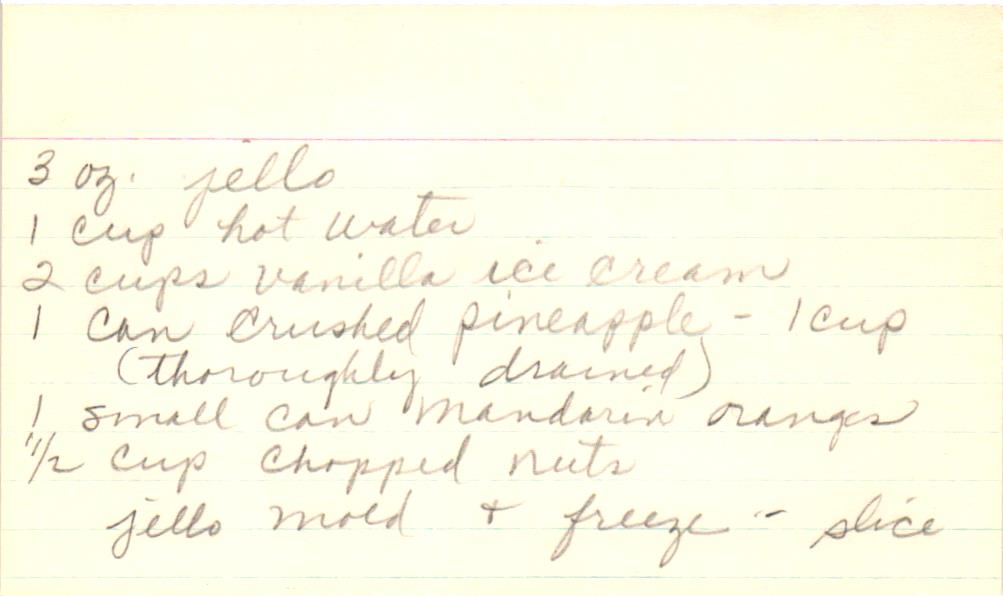 3 oz. jello
1 cup hot water
2 cups vanilla ice cream
1 can crushed pineapple - 1 cup
(thoroughly drained)
1 small can mandarin oranges
1/2 cup chopped nuts
jello mold + freeze - slice